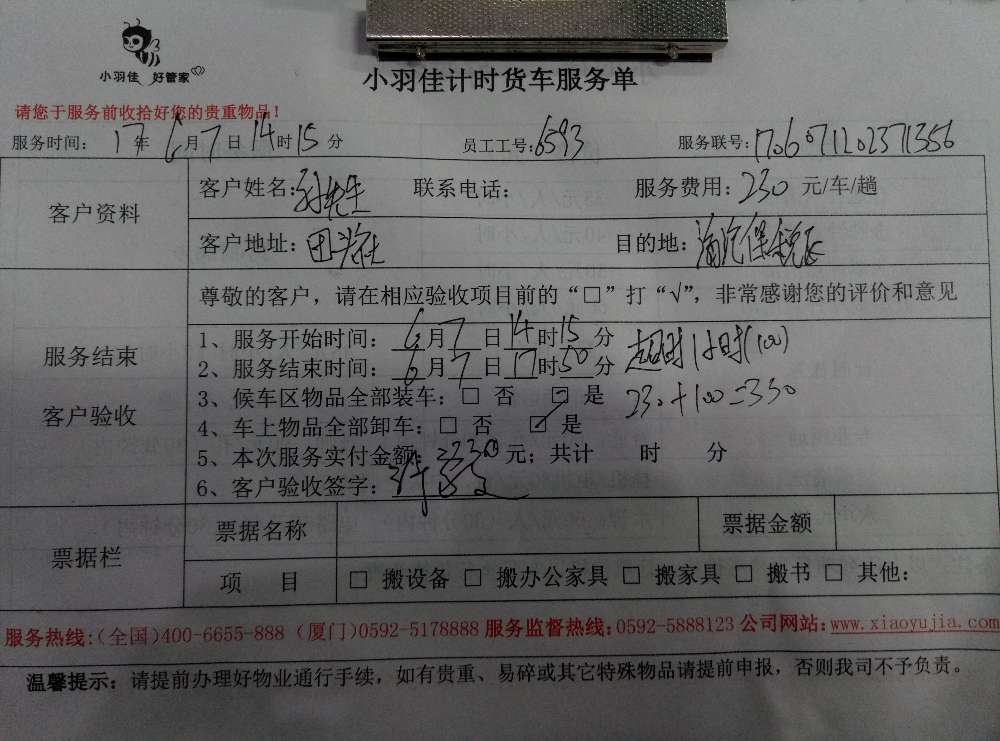 小羽佳 好管家
小羽佳计时货车服务单
请您于服务前收拾好您的贵重物品！
服务时间： 17 年 6 月 7 日 14 时 15 分 员工工号：6593 服务联号：1706071202371356
客户资料
客户姓名：孙先生 联系电话： 服务费用：230 元/车/趟
客户地址： 目的地：
尊敬的客户，请在相应验收项目前的“□”打“√”，非常感谢您的评价和意见
服务结束
客户验收
1、服务开始时间： 6 月 7 日 14 时 15 分 超时1小时(100)
2、服务结束时间： 6 月 7 日 17 时 50 分
3、候车区物品全部装车：□ 否 ☑ 是 230+100=330
4、车上物品全部卸车：□ 否 ☑ 是
5、本次服务实付金额： 元；共计 时 分
6、客户验收签字：
票据栏
票据名称 票据金额
项 目 □ 搬设备 □ 搬办公家具 □ 搬家具 □ 搬书 □ 其他：
服务热线：（全国）400-6655-888（厦门）0592-5178888 服务监督热线：0592-5888123 公司网站：www.xiaoyujia.com
温馨提示：请提前办理好物业通行手续，如有贵重、易碎或其它特殊物品请提前申报，否则我司不予负责。